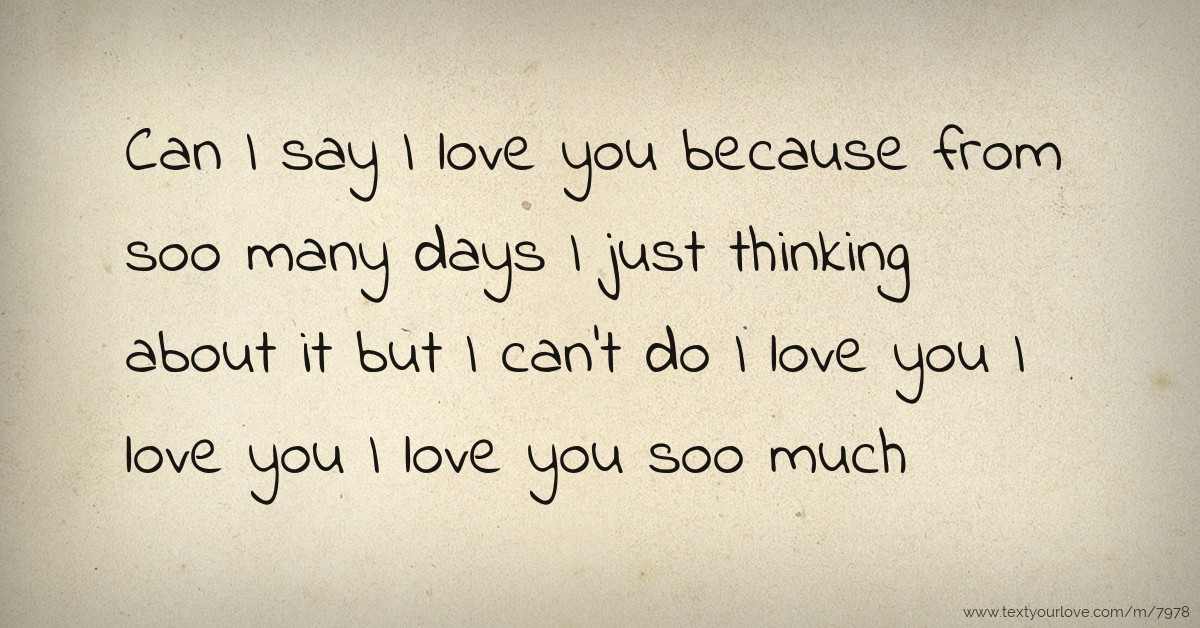 Can I say I love you because from
soo many days I just thinking
about it but I can't do I love you I
love you I love you soo much
www.textyourlove.com/m/7978